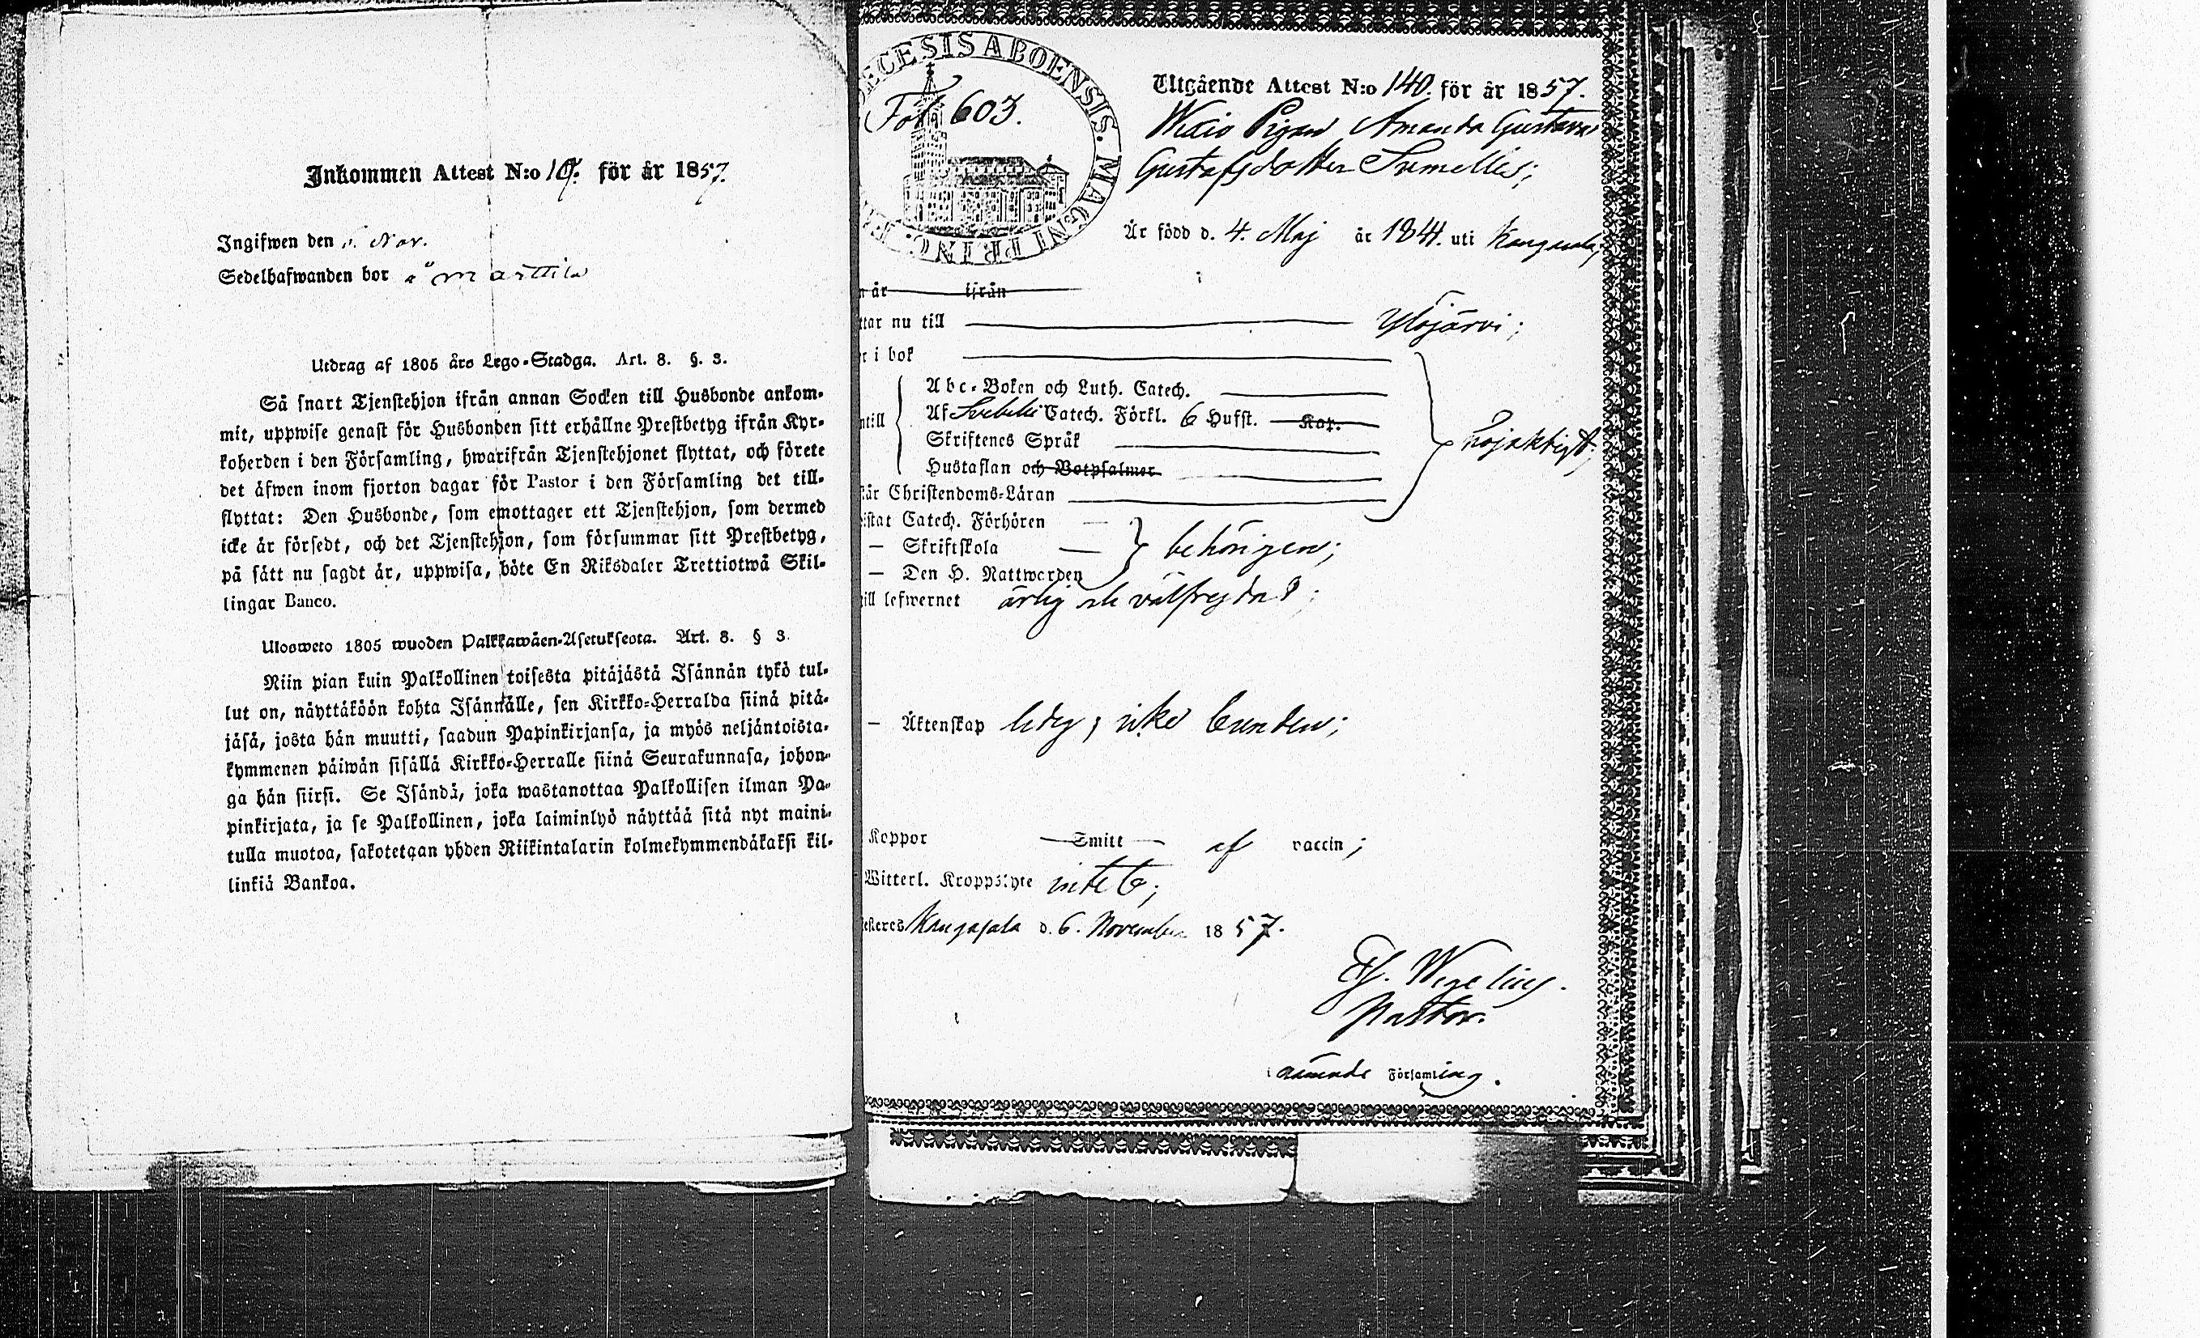 Inkommen Attest N:o 10. för år 1857.
Ingifwen den Nov.
Sedelhafwanden bor å Marttila
Utdrag af 1805 års Lego-Stadga. Art. 8. §. 3.
Så snart Tjenstehjon ifrån annan Socken till Husbonde ankom-
mit, uppwise genast för Husbonden sitt erhållne Prestbetyg ifrån Kyr-
koherden i den Församling, hwarifrån Tjenstehjonet flyttat, och förete
det äfwen inom fjorton dagar för Pastor i den Församling det till-
flyttat: Den Husbonde, som emottager ett Tjenstehjon, som dermed
icke är försedt, och det Tjenstehjon, som försummar sitt Prestbetyg,
på sätt nu sagdt är, uppwisa, böte En Riksdaler Trettiotwå Skil-
lingar Banco.
Ulosweto 1805 wuoden Palkkawäen-Asetuksesta. Art. 8. § 3.
Niin pian kuin Palkollinen toisesta pitäjästä Isännän tykö tul-
lut on, näyttäköön kohta Isännälle, sen Kirkko-Herralda siinä pitä-
jäsä, josta hän muutti, saadun Papinkirjansa, ja myös neljäntoista-
kymmenen päiwän sisällä Kirkko-Herralle siinä Seurakunnasa, johon-
ga hän siirsi. Se Isändä, joka wastanottaa Palkollisen ilman Pa-
pinkirjata, ja se Palkollinen, joka laiminlyö näyttää sitä nyt maini-
tulla muotoa, sakotetaan yhden Riikintalarin kolmekymmendäkaksi kil-
linkiä Bankoa.
ECESIS ABOENSIS. MAGNI PRINC.
Fol 603.
Utgående Attest N:o 140. för år 1857.
Pigan Amanda Gustava
Gustafsdotter
Är född d. 4. Maj år 1841. uti Kangasala,
år ifrån
ttar nu till Ylöjärvi;
i bok
Abc-Boken och Luth. Catech.
ntill Af Svebelii Catech. Förkl. 6 Hufst. Kap.
Skriftenes Språk
Hustaflan och Botpsalmer
nöjaktigt;
Christendoms-Läran
istat Catech. Förhören
— Skriftskola
behörigen;
— Den H. Nattwarden
ill lefwernet ärlig och välfrejdad;
— Äktenskap ledig, icke bunden;
Koppor Smitt af vaccin;
Witterl. Kroppslyte intet;
esteres Kangasala d. 6. November 1857.
Wegelius.
Pastor.
i nämnde Församling.